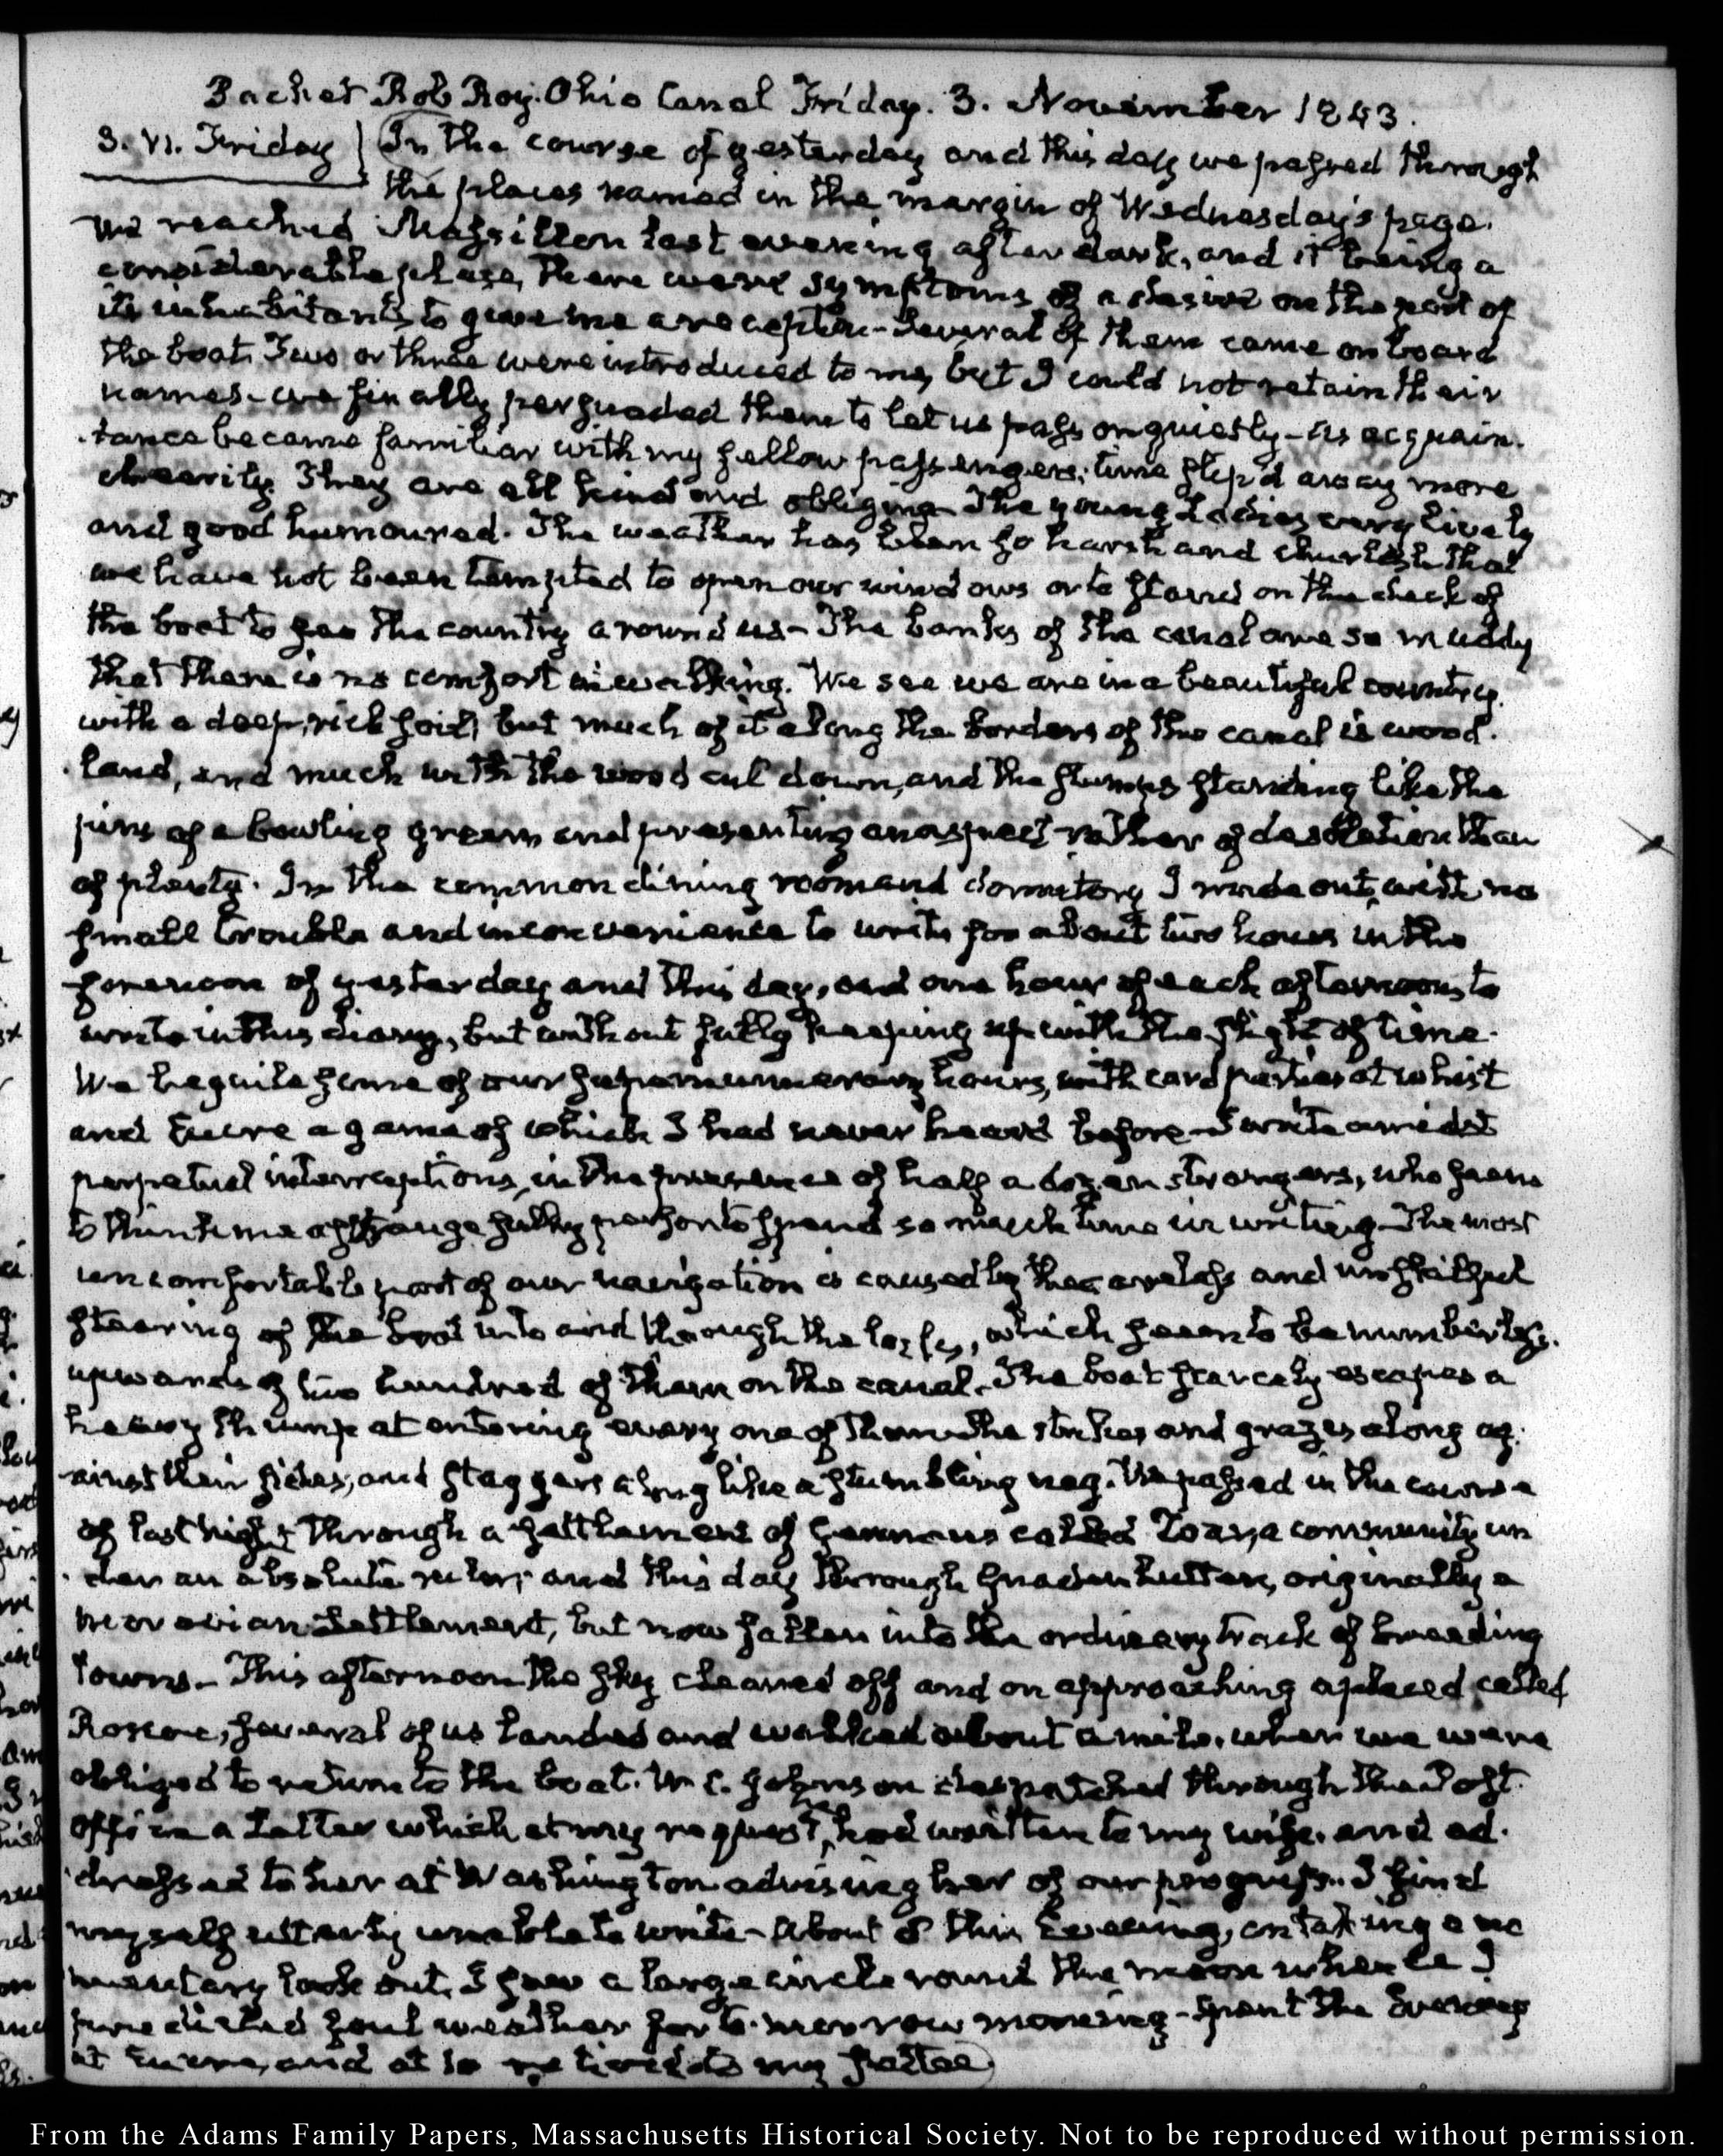 Packet Rob Roy. Ohio Canal Friday. 3. November 1843.
3. VI. Friday In the course of yesterday and this day we passed through
the places named in the margin of Wednesday's page.
We reached Massillon last evening after dark, and it being a
considerable place, there were symptoms of a desire on the part of
its inhabitants to give me a reception - Several of them came on board
the boat. Two or three were introduced to me, but I could not retain their
names - we finally persuaded them to let us pass on quietly - As acquain-
-tance became familiar with my fellow passengers, time slip'd away more
cheerily. They are all kind and obliging - The young Ladies very lively
and good humoured. The weather has been so harsh and churlish that
we have not been tempted to open our windows or to stand on the deck of
the boat to see the country around us - The banks of the canal are so muddy
that there is no comfort in walking. We see we are in a beautiful country,
with a deep, rich soil, but much of it along the borders of the canal is wood-
-land, and much with the wood cut down, and the stumps standing like the
pins of a bowling green and presenting an aspect rather of desolation than
of plenty. In the common dining room and dormitory I made out, with no
small trouble and inconvenience to write for about two hours in the
forenoon of yesterday and this day, and one hour of each afternoon, to
write in this diary, but without fully keeping up with the flight of time.
We beguile some of our supernumerary hours, with card parties at whist
and Eucre a game of which I had never heard before - I write amidst
perpetual interruptions, in the presence of half a dozen strangers, who seem
to think me a strange sulky person to spend so much time in writing - The most
uncomfortable part of our navigation is caused by the careless and unskilful
steering of the boat into and through the locks, which seem to be numberless.
upwards of two hundred of them on the canal. The boat scarcely escapes a
heavy thump at entering every one of them - She strikes and grazes along ag-
-ainst their sides, and staggers along like a stumbling nag. We passed in the course
of last night through a settlement of Germans called Zoar, a community un
-der an absolute ruler; and this day through Gnadenhutten, originally a
Moravian Settlement, but now fallen into the ordinary track of breeding
towns - This afternoon the sky cleared off and on approaching a placed called
Roscoe, several of us landed and walked about a mile, when we were
obliged to return to the boat. W. C. Johnson despatched through the Post-
office a Letter which at my request, had written to my wife, and ad-
-dressed to her at Washington advising her of our progress. I find
myself utterly unable to write - About 8 this Evening, on taking a mo
mentary look out, I saw a large circle round the moon whence I
predicted foul weather for to-morrow morning - Spent the Evening
at Eucre, and at 10 retired to my settee
From the Adams Family Papers, Massachusetts Historical Society. Not to be reproduced without permission.